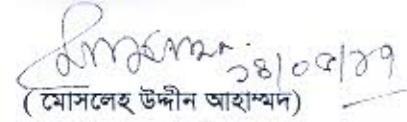 ১৪/০৫/১৭
( মোসলেহ উদ্দীন আহাম্মদ)